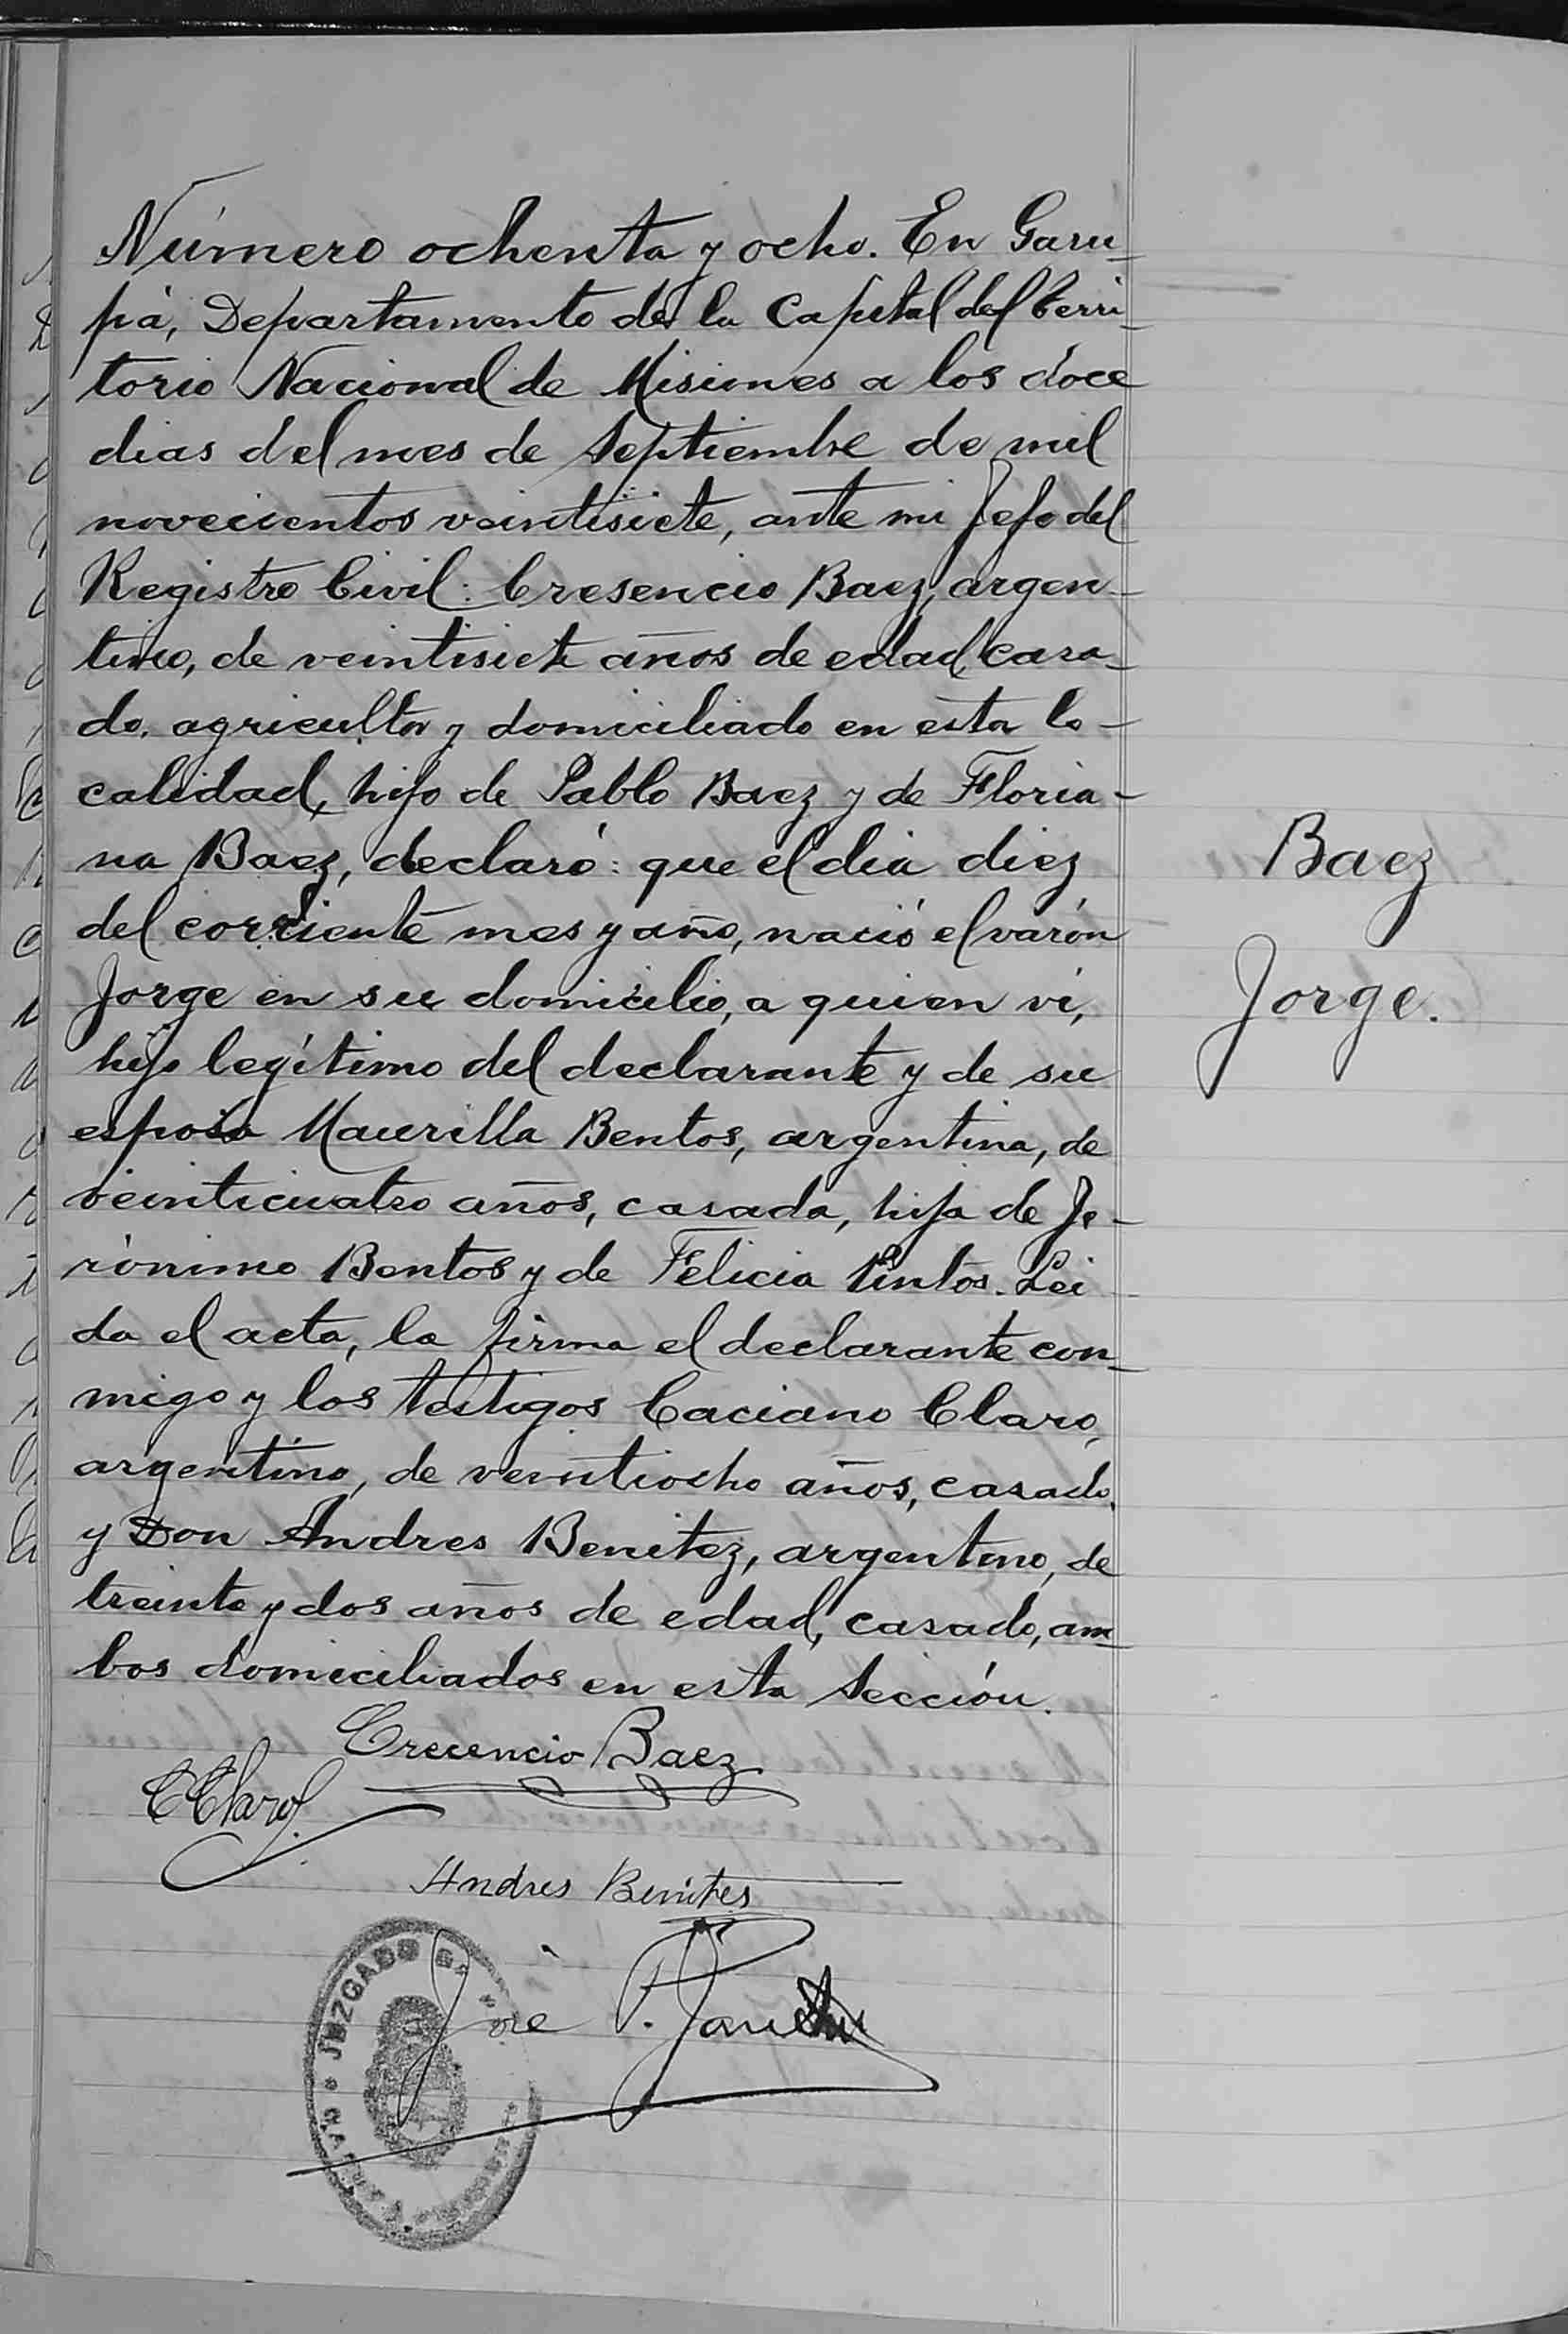 Número ochenta y ocho. En Garu-
pá, Departamento de la Capital del Terri-
torio Nacional de Misiones a los doce
dias del mes de Septiembre de mil
novecientos veintisiete, ante mi Jefe del
Registro Civil: Cresencio Baez, argen-
tino, de veintisiete años de edad, casa-
do, agricultor y domiciliado en esta lo-
calidad, hijo de Pablo Baez y de Floria-
na Baez, declaró: que el dia diez
del corriente mes y año, nació el varón
Jorge en su domicilio, a quien ví,
hijo legítimo del declarante y de su
esposa Maurilla Bentos, argentina, de
veinticuatro años, casada, hija de Je-
rónimo Bentos y de Felicia Pintos. Lei-
da el acta, la firma el declarante con-
migo y los testigos Caciano Claro,
argentino, de veintiocho años, casado,
y Don Andres Benitez, argentino, de
treinta y dos años de edad, casado, am-
bos domiciliados en esta Sección.
Baez
Jorge.
Crecencio Baez
CClaro
Andres Benites
José P.
JUZGADO